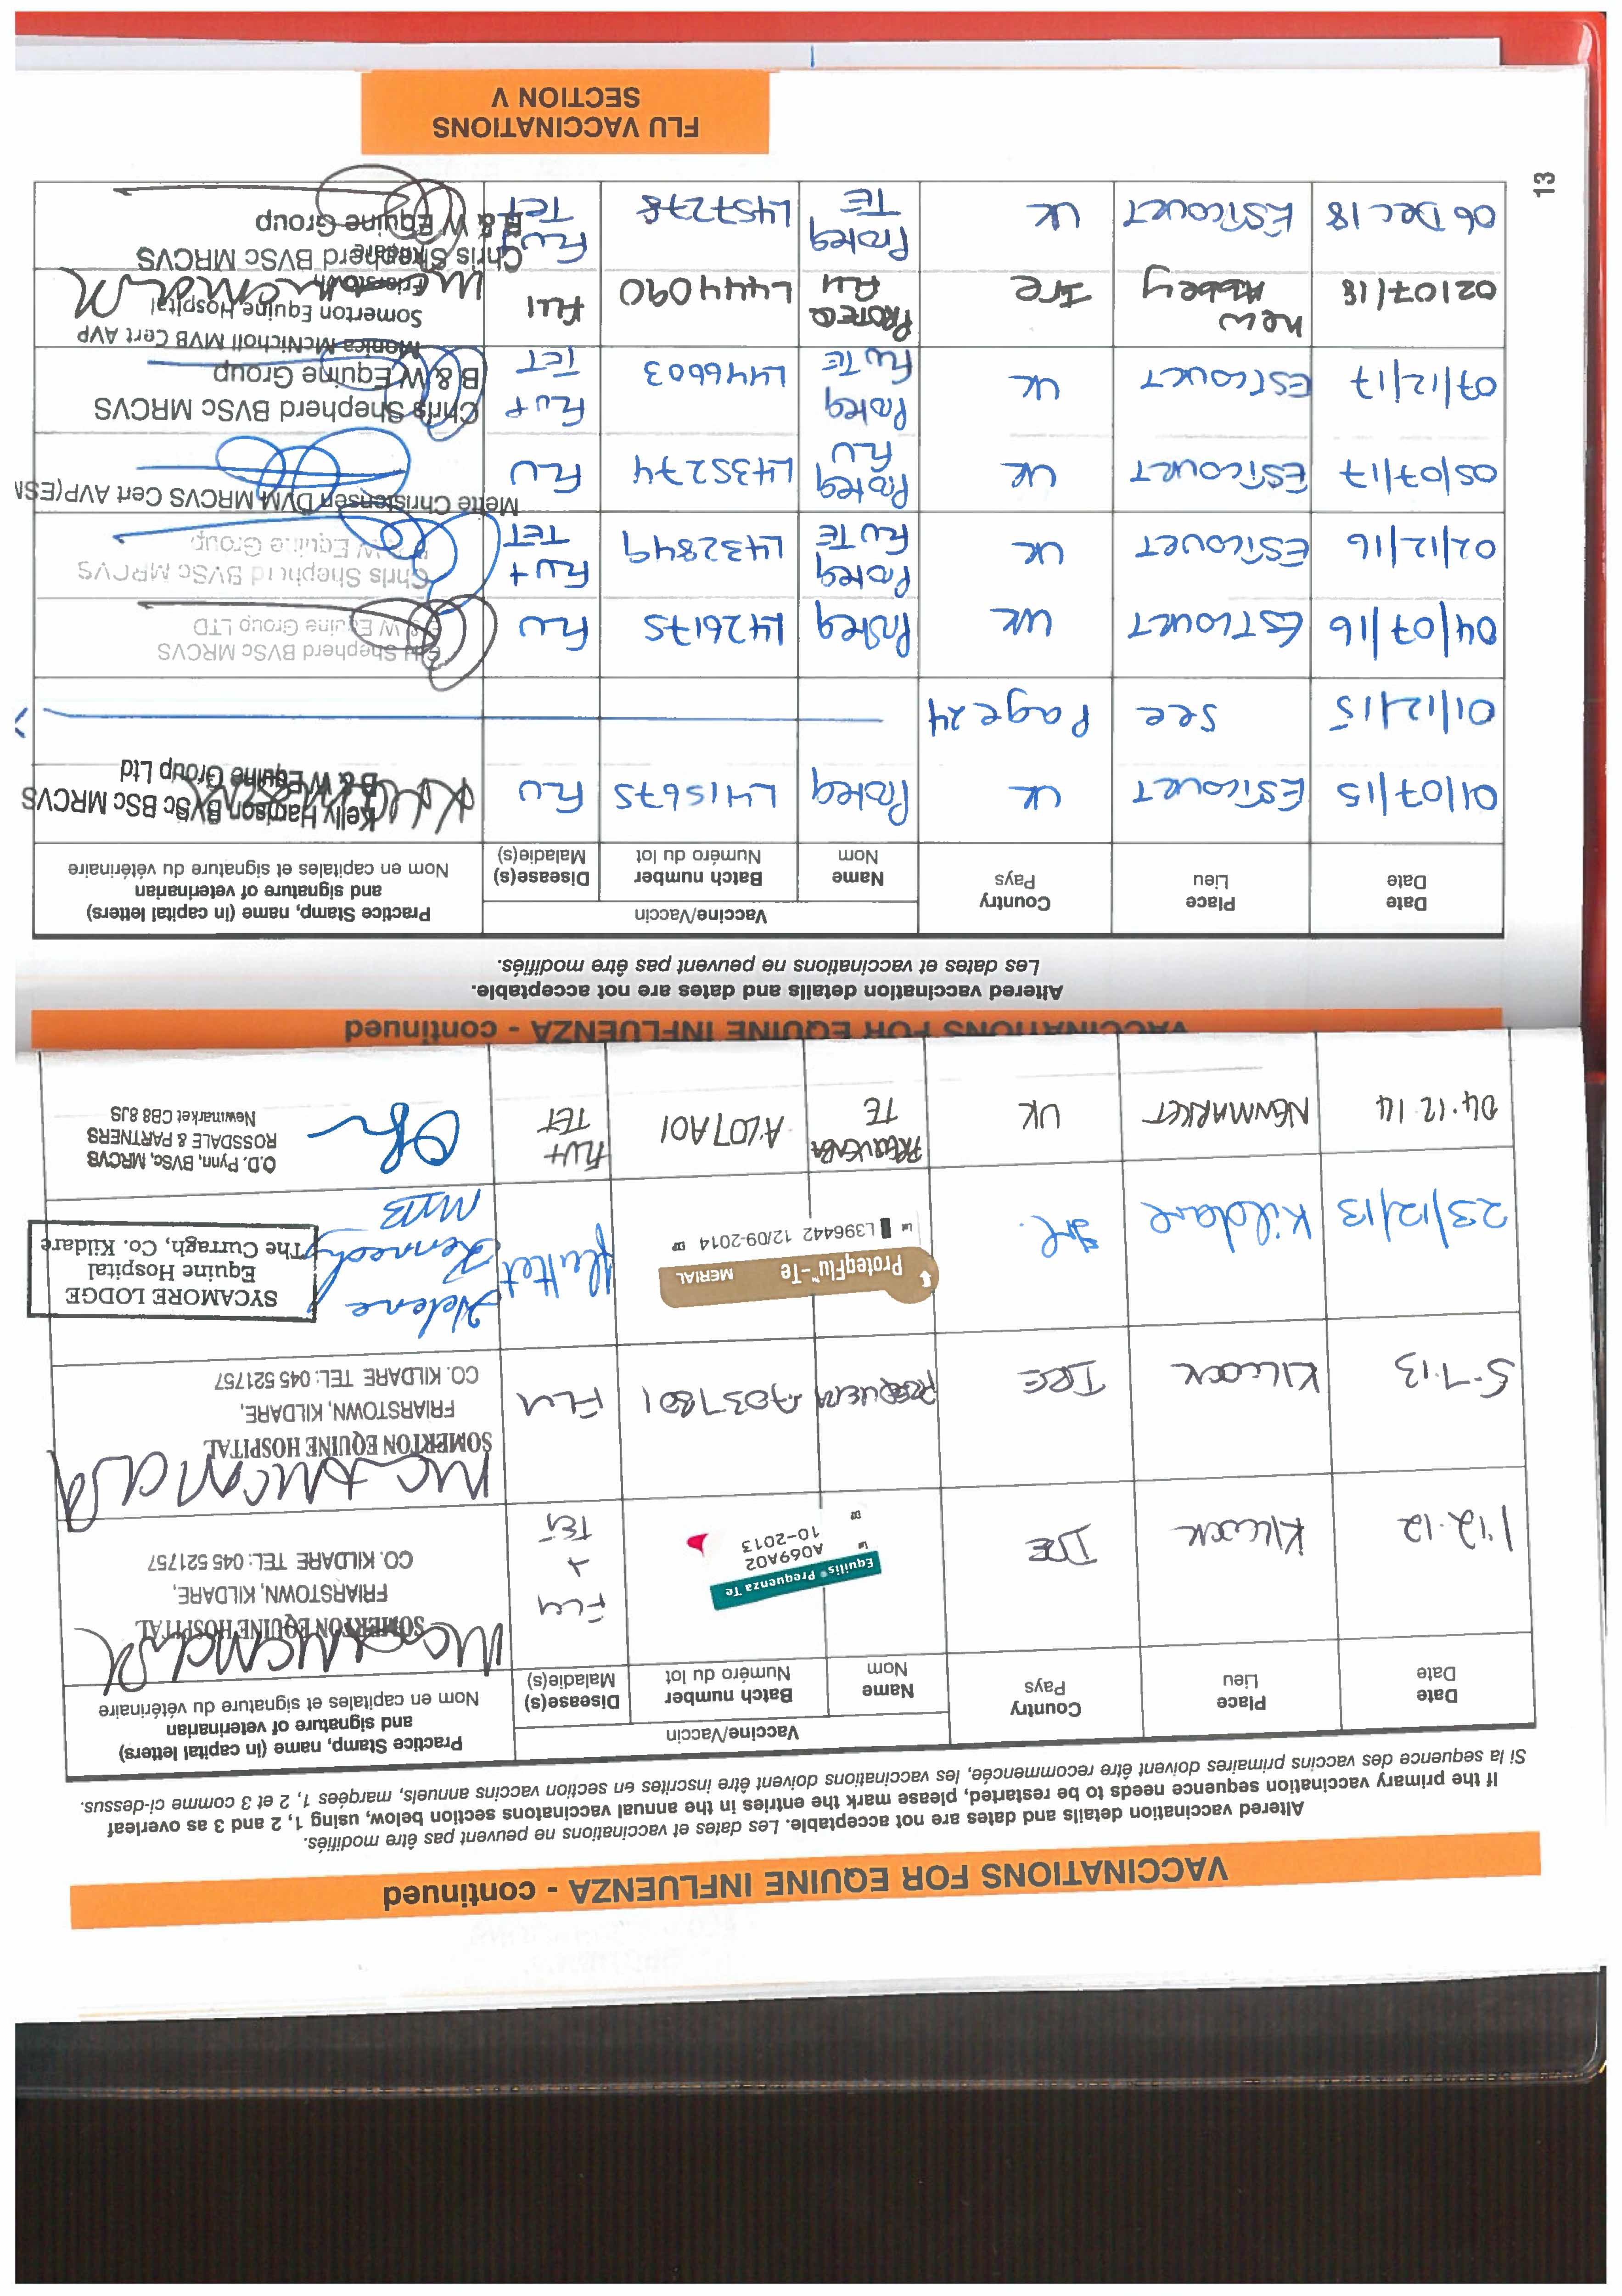 VACCINATIONS FOR EQUINE INFLUENZA - continued
Altered vaccination details and dates are not acceptable. Les dates et vaccinations ne peuvent pas être modifiés.
If the primary vaccination sequence needs to be restarted, please mark the entries in the annual vaccinatons section below, using 1, 2 and 3 as overleaf
Si la sequence des vaccins primaires doivent être recommencée, les vaccinations doivent être inscrites en section vaccins annuels, marquées 1, 2 et 3 comme ci-dessus.
Date
Date
Place
Lieu
Country
Pays
Vaccine/Vaccin
Name
Nom
Batch number
Numéro du lot
Disease(s)
Maladie(s)
Practice Stamp, name (in capital letters)
and signature of veterinarian
Nom en capitales et signature du vétérinaire
1.12.12
Kilcock
IRE
Equilis® Prequenza Te
Lot
A069A02
10-2013
Flu
+
TET
SOMERTON EQUINE HOSPITAL
FRIARSTOWN, KILDARE,
CO. KILDARE TEL: 045 521757
5.7.13
Kilcock
IRE
Flu
SOMERTON EQUINE HOSPITAL
FRIARSTOWN, KILDARE,
CO. KILDARE TEL: 045 521757
23/12/13
Kildare
Irl.
ProteqFlu™-Te MERIAL
Lot L396442 12/09-2014
flu tet
Helene
Kennedy
MVB
SYCAMORE LODGE
Equine Hospital
The Curragh, Co. Kildare
04.12.14
NEWMARKET
UK
PREQUENZA
TE
A207A01
FLU+
TET
O.D. Pynn, BVSc, MRCVS
ROSSDALE & PARTNERS
Newmarket CB8 8JS
VACCINATIONS FOR EQUINE INFLUENZA - continued
Altered vaccination details and dates are not acceptable.
Les dates et vaccinations ne peuvent pas être modifiés.
Date
Date
Place
Lieu
Country
Pays
Vaccine/Vaccin
Name
Nom
Batch number
Numéro du lot
Disease(s)
Maladie(s)
Practice Stamp, name (in capital letters)
and signature of veterinarian
Nom en capitales et signature du vétérinaire
01/07/15
ESTCOURT
UK
Proteq
L415675
FLU
Kelly Harrison BVSc BSc MRCVS
B & W Equine Group Ltd
01/12/15
See
Page 24
04/07/16
ESTCOURT
UK
Proteq
L426175
FLU
Shepherd BVSc MRCVS
B & W Equine Group LTD
02/12/16
ESTCOURT
UK
Proteq
FLU TE
L432849
FLU +
TET
Chris Shepherd BVSc MRCVS
B & W Equine Group
05/07/17
ESTCOURT
UK
Proteq
FLU
L435274
FLU
Mette Christensen DVM MRCVS Cert AVP(ESM
07/12/17
ESTCOURT
UK
Proteq
FLU TE
L446603
FLU +
TET
Chris Shepherd BVSc MRCVS
B & W Equine Group
02/07/18
New
Abbey
Ire
PROTEQ
FLU
L444090
FLU
Monica McNicholl MVB Cert AVP
Somerton Equine Hospital
06 Dec 18
ESTCOURT
UK
Proteq
TE
L457278
FLU +
TET
Chris Shepherd BVSc MRCVS
B & W Equine Group
FLU VACCINATIONS
SECTION V
13